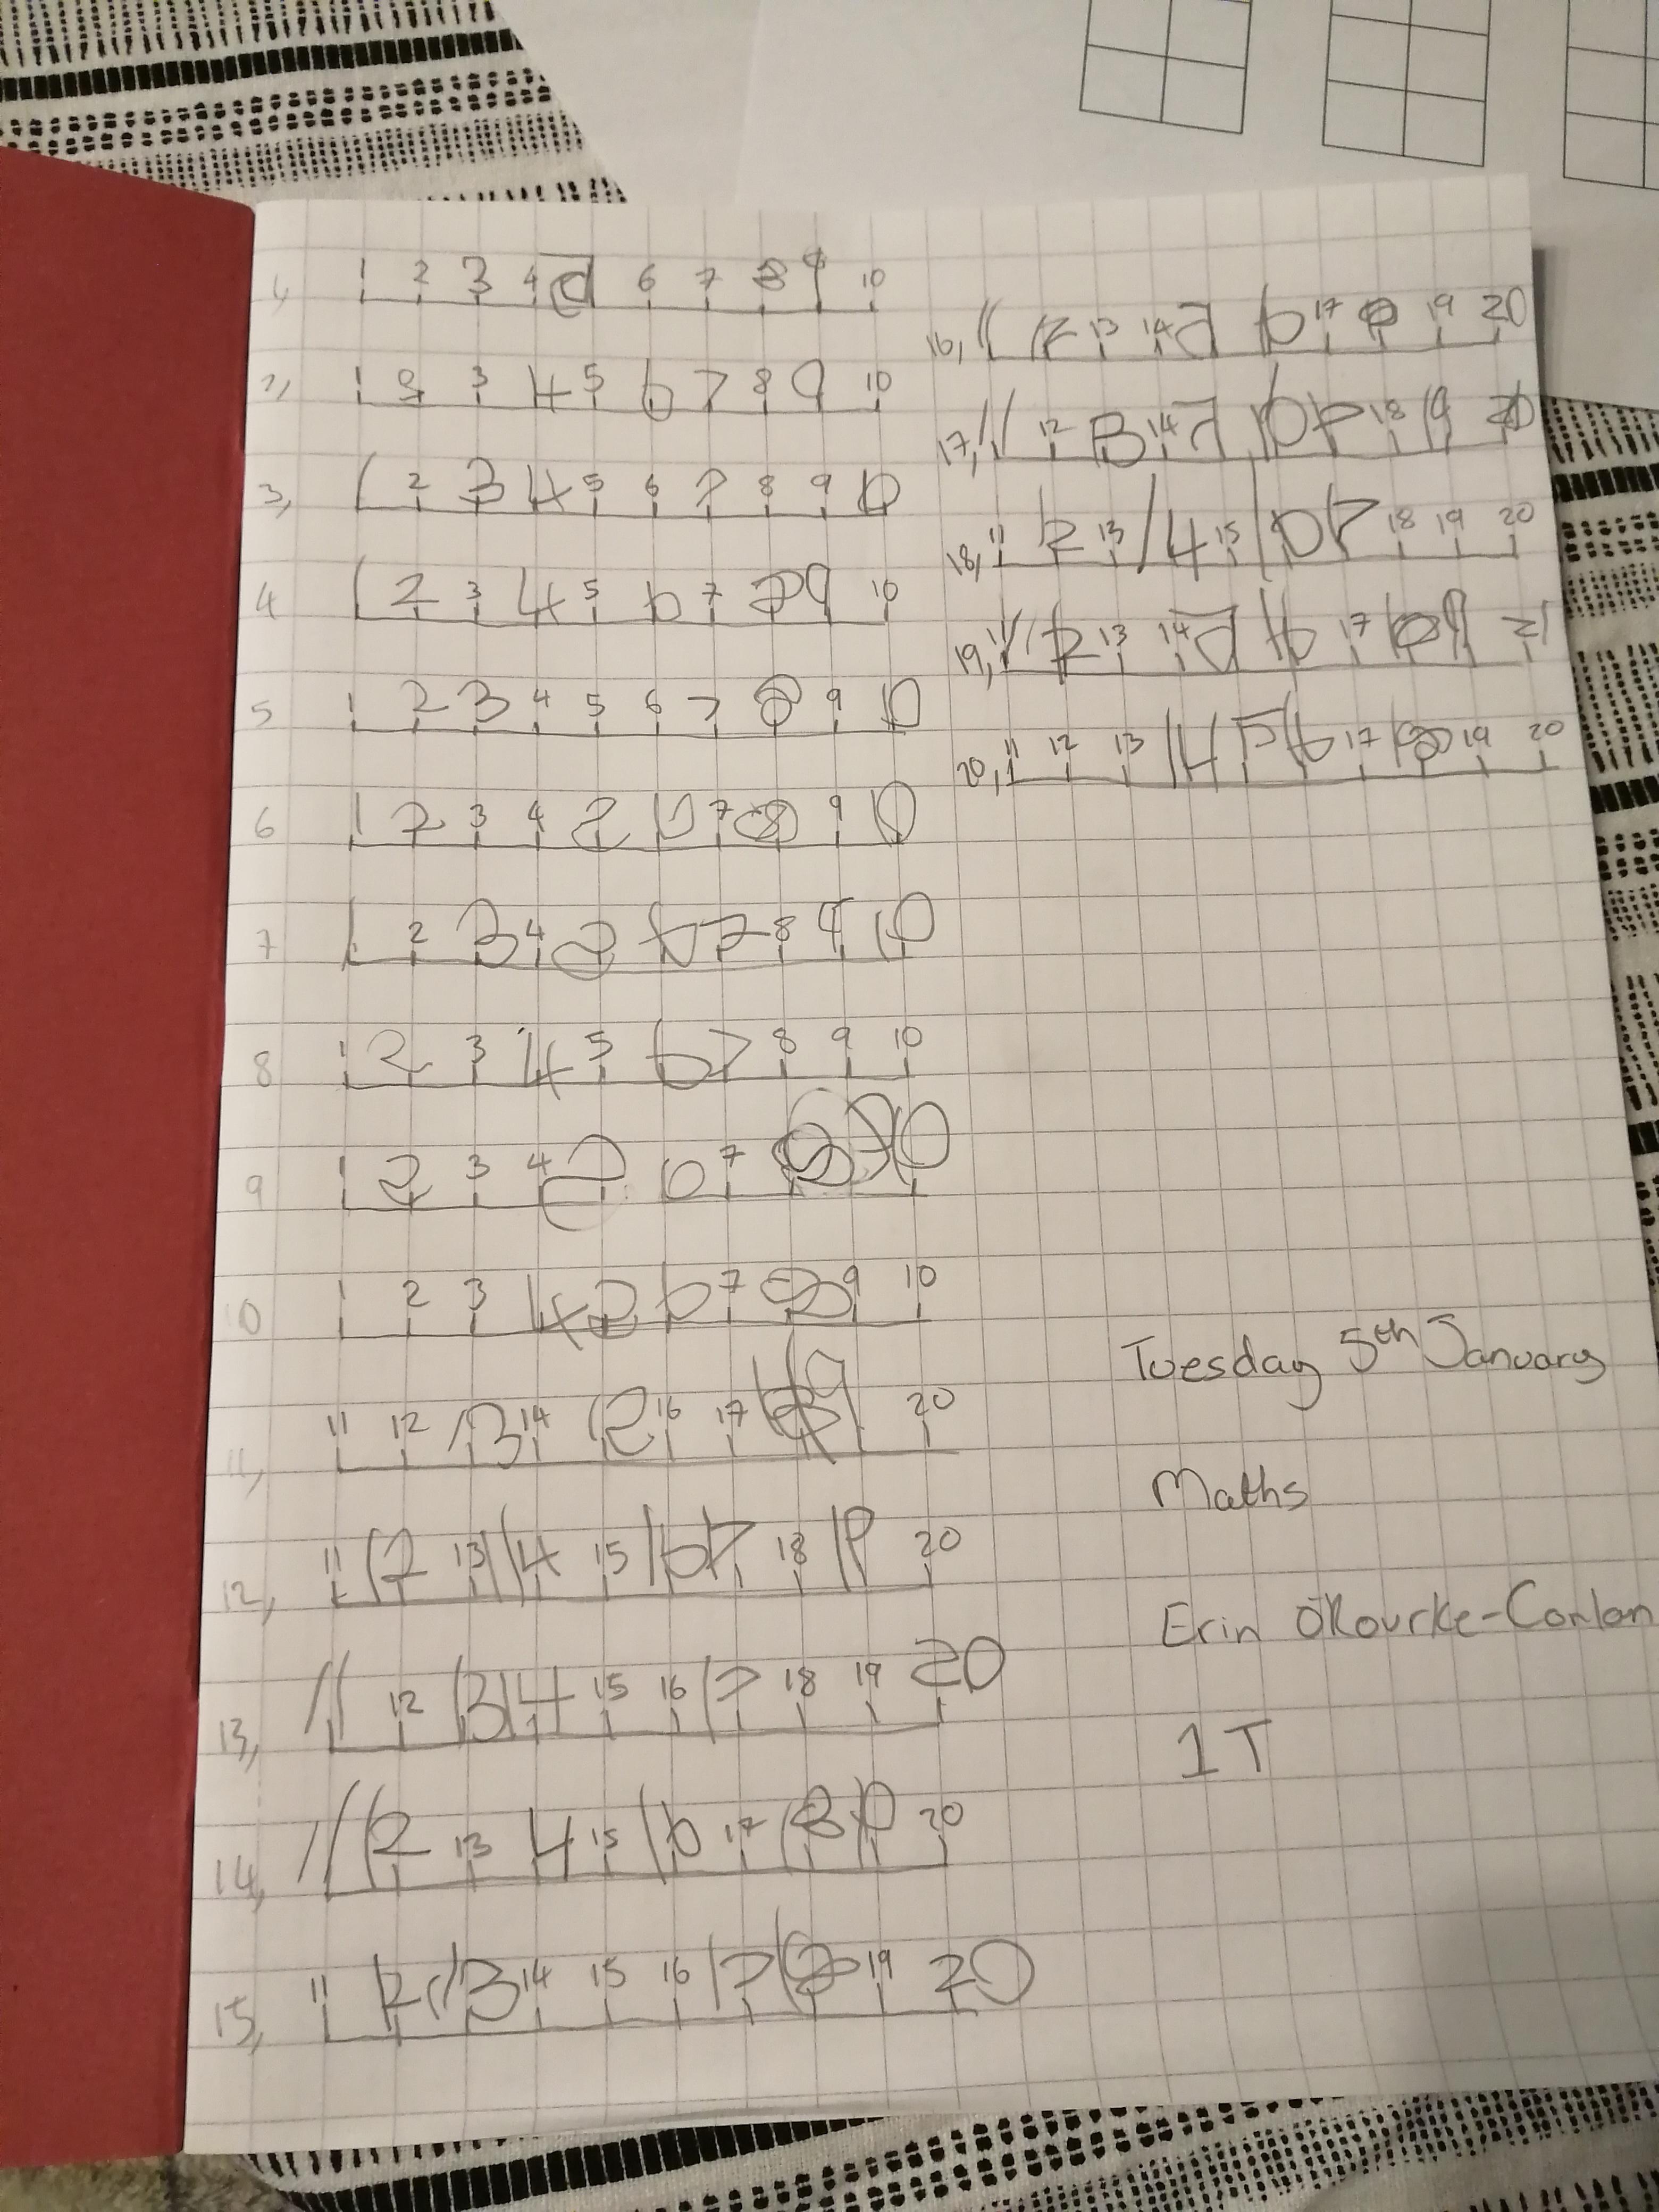 1, 1 2 3 4 6 7 8 9 10
2, 1 2 3 4 5 6 7 8 9 10
3, 1 2 3 4 5 6 7 8 9 10
4 1 2 3 4 5 6 7 8 9 10
5 1 2 3 4 5 6 7 8 9 10
6 1 2 3 4 6 7 8 9 10
7 1 2 3 4 6 7 8 9 10
8 1 2 3 4 5 6 7 8 9 10
9 1 2 3 4 6 7 8 10
10 1 2 3 4 6 7 8 9 10
11, 11 12 13 14 16 17 20
12, 11 12 13 14 15 16 17 18 19 20
13, 11 12 13 14 15 16 17 18 19 20
14, 11 12 13 4 15 16 17 18 19 20
15, 11 12 13 14 15 16 17 18 19 20
16, 11 12 13 14 17 19 20
17, 11 12 13 14 16 17 18 19 20
18, 11 12 13 14 15 16 17 18 19 20
19, 11 12 13 14 16 17 18 19
20, 11 12 13 14 15 16 17 18 19 20
Tuesday 5th January
Maths
Erin O'Rourke-Conlan
1T